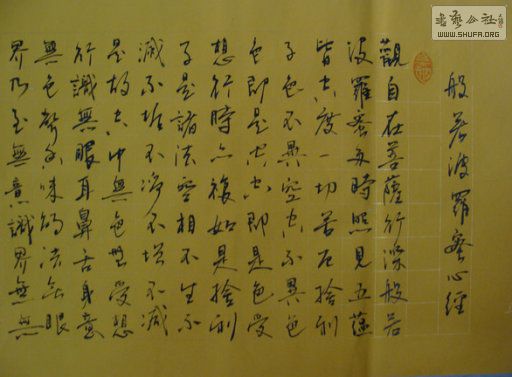 書藝公社
WWW.SHUFA.ORG
般若波羅蜜心經
觀自在菩薩行深般若
波羅蜜多時照見五蘊
皆空度一切苦厄捨利
子色不異空空不異色
色即是空空即是色受
想行時亦複如是捨利
子是諸法空相不生不
滅不垢不淨不增不減
是故空中無色無受想
行識無眼耳鼻舌身意
無色聲香味的法無眼
界乃至無意識界無無